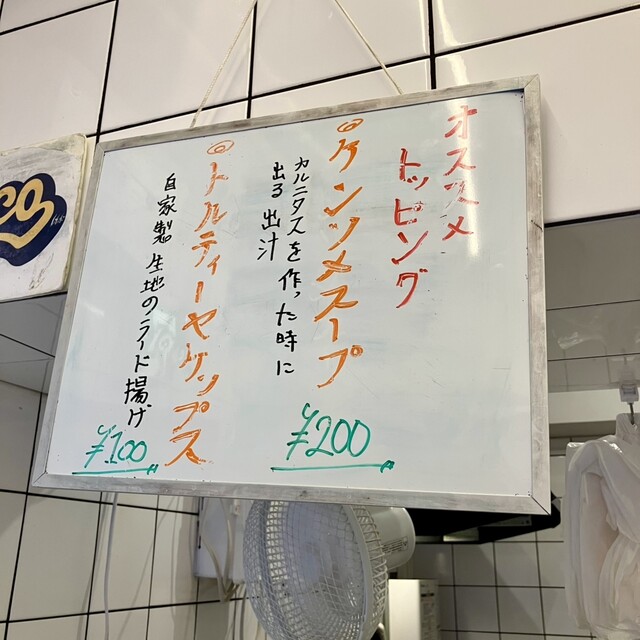 オススメ
トッピング
◎ケンソメスープ
カルニタスを作った時に
出る出汁
¥200
◎トルティーヤチップス
自家製生地のラード揚げ
¥100